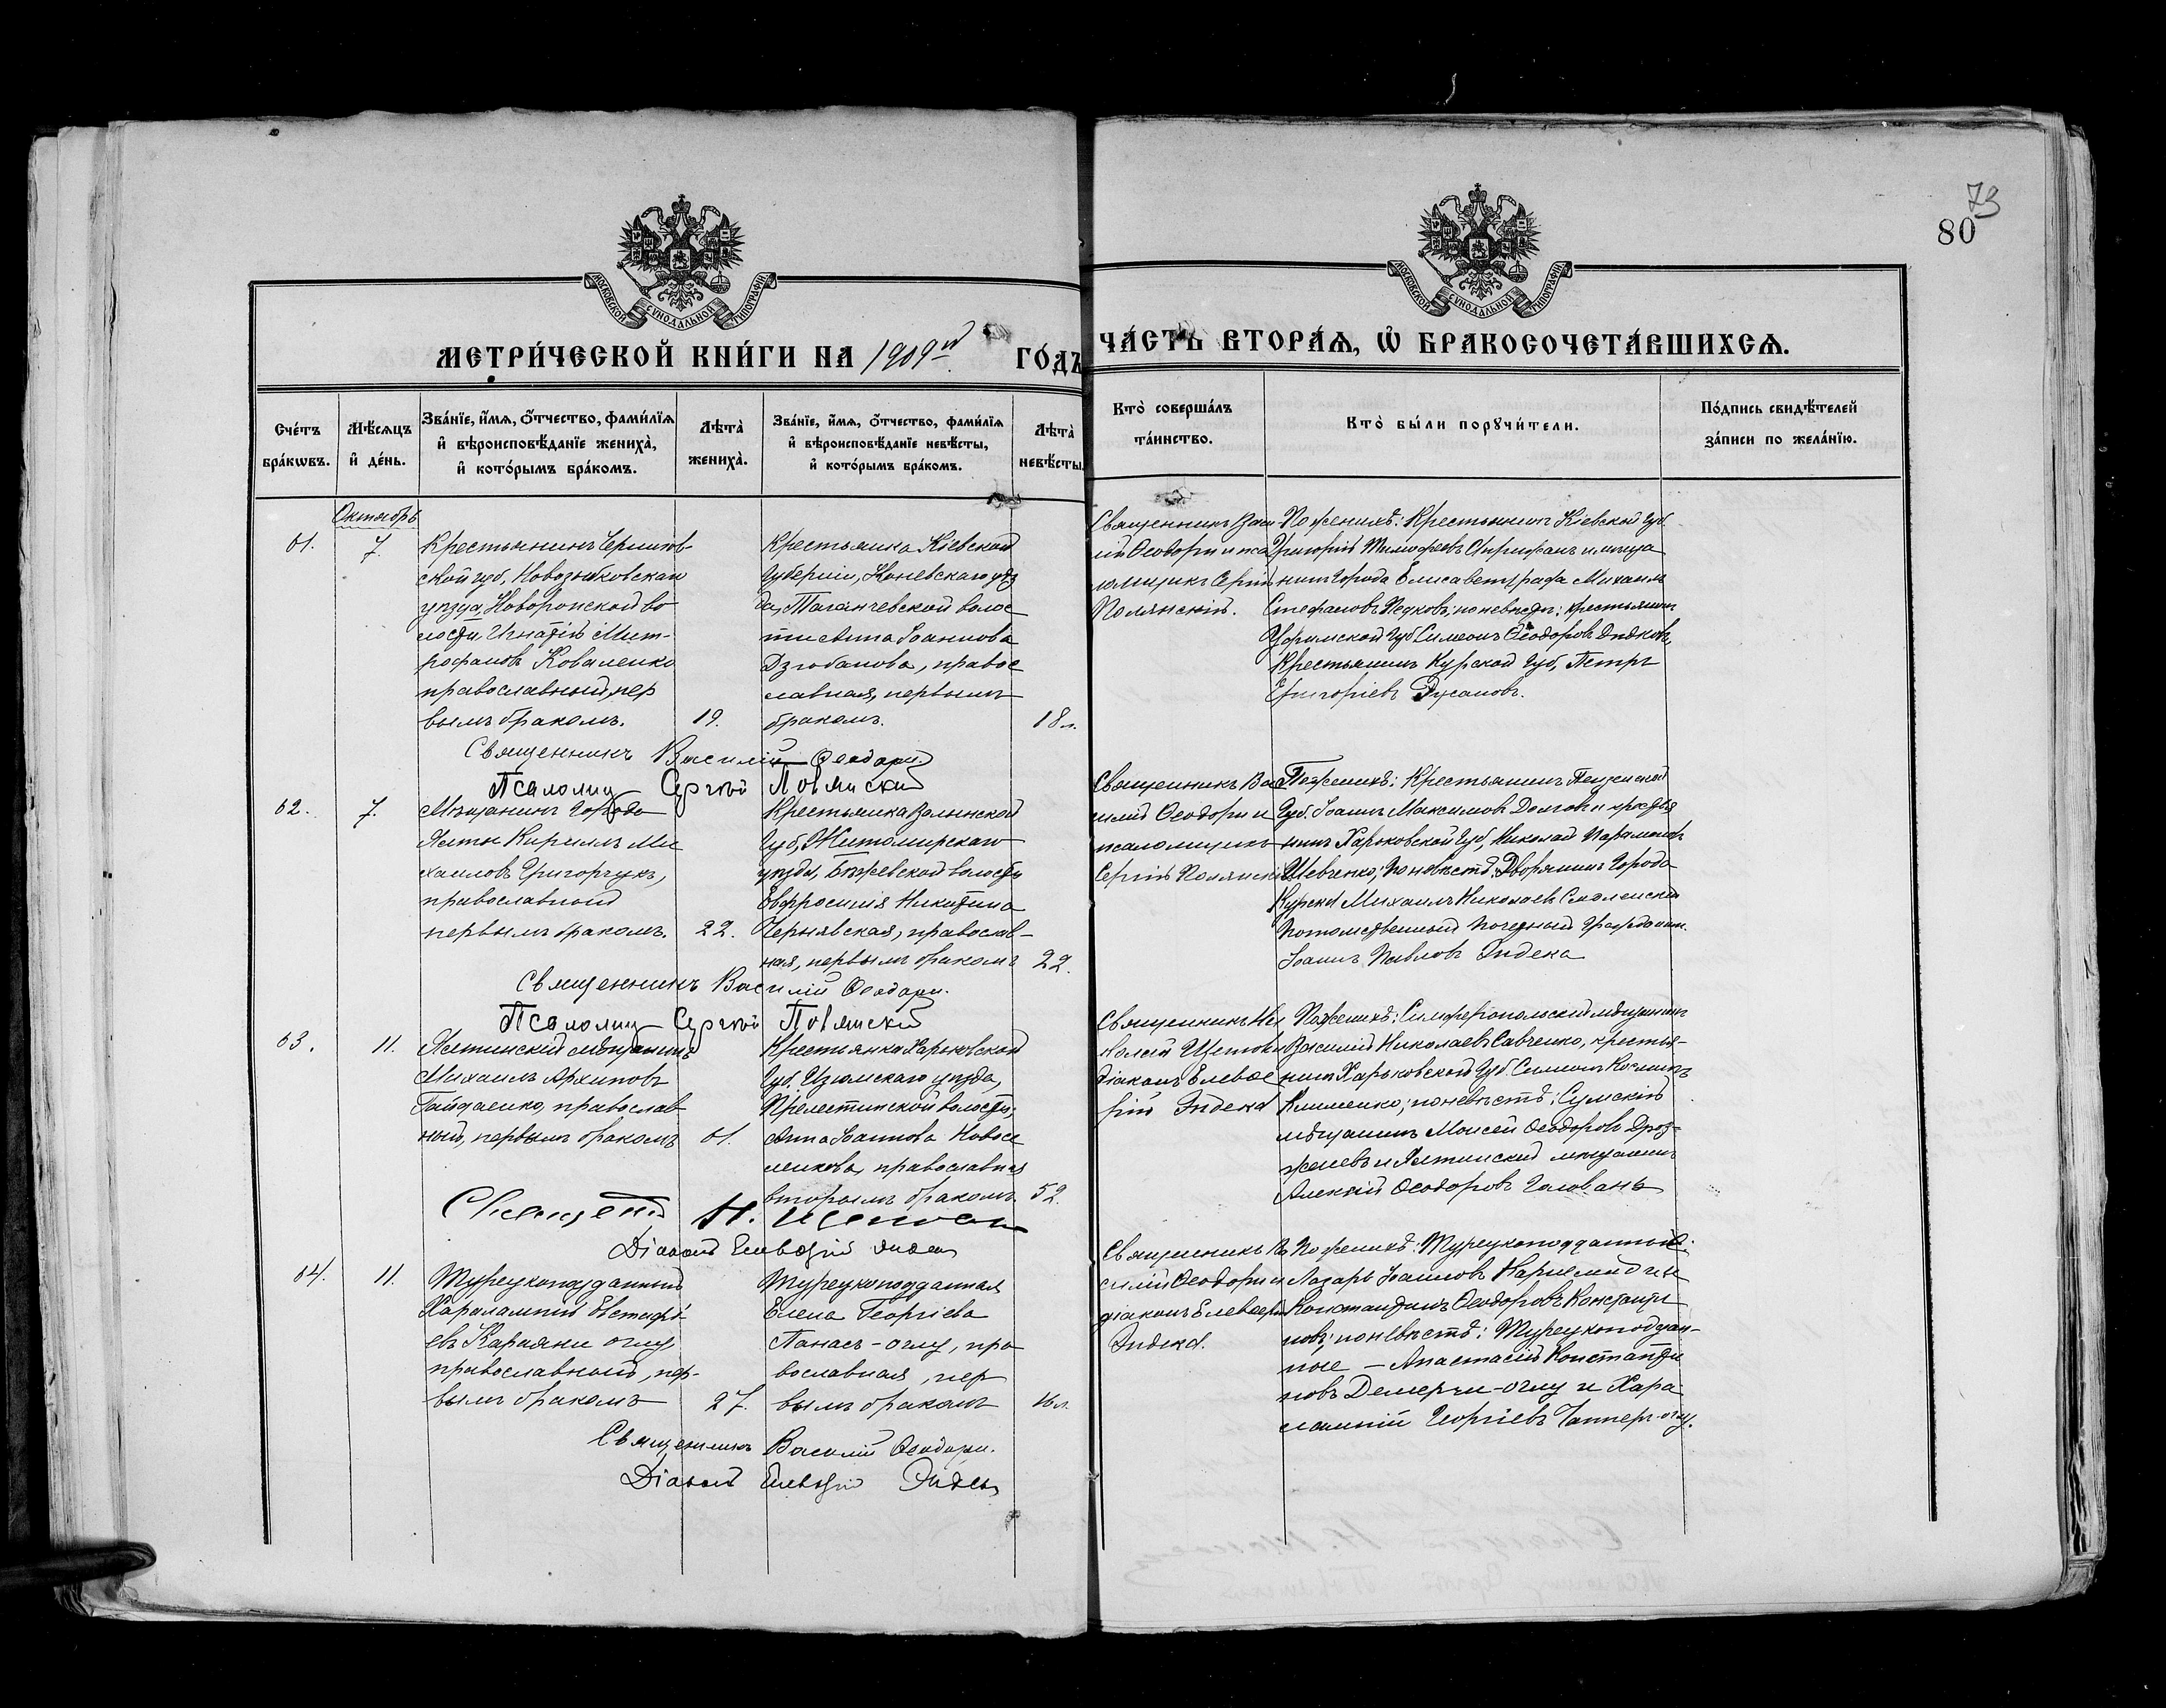 73
80
МОСКОВСКОЙ СѴНОДАЛЬНОЙ ТИПОГРАФІИ
МОСКОВСКОЙ СѴНОДАЛЬНОЙ ТИПОГРАФІИ
МЕТРИ́ЧЕСКОЙ КНИ́ГИ НА 1909й ГО́ДЪ
ЧА́СТЬ ВТОРА́Ѧ, Ѡ҆ БРАКОСОЧЕТА́ВШИХСѦ.
Сче́тъ бра́кѡвъ.
Мѣ́сѧцъ и҆ де́нь.
Зва́нїе, и҆́мѧ, ѻ҆́тчество, фами́лїѧ и҆ вѣроисповѣ́данїе жениха̀, и҆ кото́рымъ бра́комъ.
Лѣта̀ жениха̀.
Зва́нїе, и҆́мѧ, ѻ҆́тчество, фами́лїѧ и҆ вѣроисповѣ́данїе невѣ́сты, и҆ кото́рымъ бра́комъ.
Лѣта̀ невѣ́сты.
Кто̀ соверша́лъ та́инство.
Кто̀ бы́ли порꙋчи́тели.
По́дпись свидѣ́телей за́писи по жела́нїю.
Октябрь
61.
7.
Крестьянинъ Чернигов-
ской губ, Новозыбковскаго
уѣзда, Новоропской во
лости, Игнатій Мит-
рофановъ Коваленко
православный, пер
вымъ бракомъ.
19.
Крестьянка Кіевской
Губерніи, Каневскаго уѣз
да, Таганчевской волос
ти Анна Іоаннова
Дзюбанова, правос
лавная, первымъ
бракомъ.
18 л.
Священникъ Васи
лій Ѳеодори и пса
ломщикъ Сергій
Полянскій.
По женихѣ: Крестьянинъ Кіевской Губ.
Григорій Тимофеевъ и мѣща
нинъ города Елисаветграда Михаилъ
Стефановъ Педковъ; по невѣстѣ: крестьянинъ
Уфимской Губ. Симеонъ Ѳеодоровъ Дидковъ,
Крестьянинъ Курской Губ, Петръ
Григоріевъ Русановъ.
Священникъ Василій Ѳеодори.
Псаломщ Сергѣй Полянскій
62.
7.
Мѣщанинъ города
Ялты Кириллъ Ми
хаиловъ Григорчукъ,
православный
первымъ бракомъ.
22.
Крестьянка Волынской
Губ, Житомирскаго
уѣзда, Бѣжевской волости
Евфросинія Никитина
Чернявская, православ-
ная, первымъ бракомъ
22.
Священникъ Ва
силій Ѳеодори и
псаломщикъ
Сергій Полянскій
По женихѣ: Крестьянинъ Пензенской
Губ. Іоаннъ Максимовъ Долговъ и крестья
нинъ Харьковской Губ, Николай Парамоновъ
Шевченко; по невѣстѣ: Дворянинъ Города
Курска Михаилъ Николаевъ Смоленскій
Потомственный Почетный Гражданин.
Іоаннъ Павловъ Эндека
Священникъ Василій Ѳеодори.
Псаломщ Сергѣй Полянскій
63.
11.
Ялтинскій мѣщанинъ
Михаилъ Архиповъ
Гайдаенко, православ
ный, первымъ бракомъ
61.
Крестьянка Харьковской
Губ. Изюмскаго уѣзда,
Прелестинской волости,
Анна Іоаннова Новосе
ленкова, православная
вторымъ бракомъ.
52.
Священникъ Ни
колай Щетов
діаконъ Елевѳе
рій Эндека
По женихѣ: Симферопольскій мѣщанинъ
Василій Николаевъ Савченко, крестья-
нинъ Харьковской Губ. Симеонъ Космин
Клименко; по невѣстѣ: Сумскій
мѣщанинъ Моисей Ѳеодоровъ Дроз-
женевъ и Ялтинскій мѣщанинъ
Алексій Ѳеодоровъ Головань
Діаконъ Елевѳерій Эндека
64.
11.
Турецкоподданный
Харалампій Евстафі
евъ Караяни оглу
православный, пер-
вымъ бракомъ
27.
Турецкоподданная
Елена Георгіева
Панаёъ-оглу, пра
вославная, пер
вымъ бракомъ
16 л.
Священникъ Ва
силій Ѳеодори и
діаконъ Елевѳерій
Эндека.
По женихѣ: Турецкоподданные:
Лазарь Іоанновъ и
Константинъ Ѳеодоровъ Константи
новъ; по невѣстѣ: Турецкоподдан-
ные — Анастасій Константи
новъ Демерчи-оглу и Хара
лампій Георгіевъ оглу.
Священникъ Василій Ѳеодори.
Діаконъ Елевѳерій Эндека